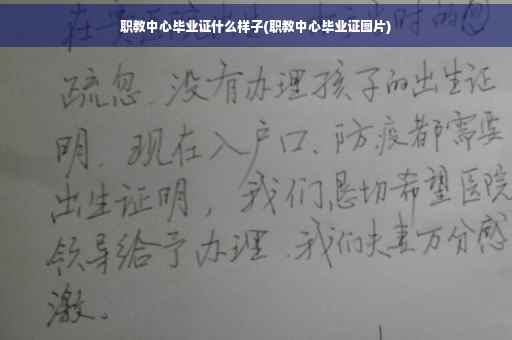 职教中心毕业证什么样子(职教中心毕业证图片)
时的
疏忽、没有办理孩子的出生证
明、现在入户口、防疫都需要
出生证明，我们恳切希望医院
领导给予办理、我们夫妻万分感
激。